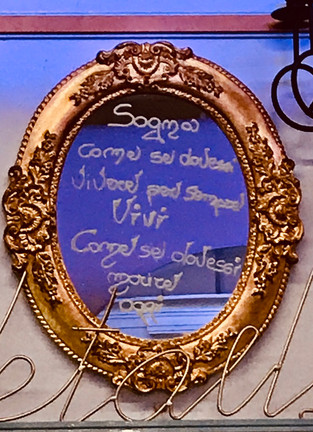 Sogna
Come se dovessi
vivere per sempre
Vivi
Come se dovessi
morire
oggi